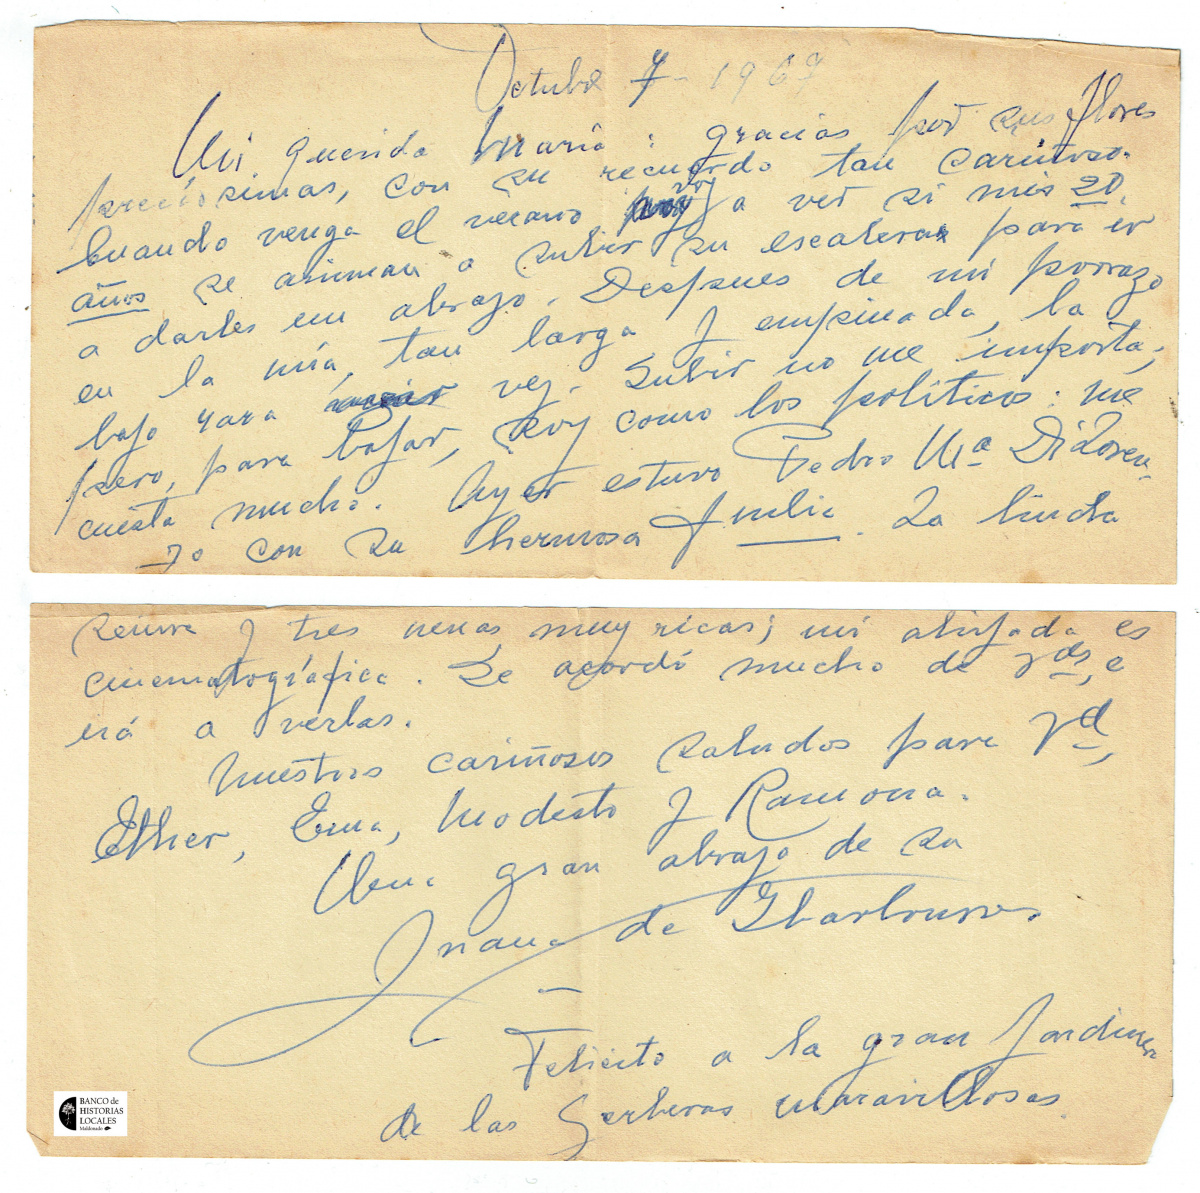 Octubre 7 - 1967
Mi querida María: gracias por sus flores
preciosimas, con su recuerdo tan cariñoso.
Cuando venga el verano voy a ver si mis 20
años se animan a subir su escalera para ir
a darles un abrazo. Despues de mi porrazo
en la mía, tan larga y empinada, la
bajo rara vez. Subir no me importa;
pero, para bajar, soy como los políticos: me
cuesta mucho. Ayer estuvo Pedro Mª DiLoren
zo con su hermosa familia. La linda
señora y tres nenas muy ricas; mi ahijada es
cinematográfica. Se acordó mucho de Vds, e
irá a verlas.
Nuestros cariñosos saludos para Vd,
Esther, Ema, Modesto y Ramona.
Un gran abrazo de su
Juana de Ibarbourou
Felicito a la gran Jardinera
de las Gerberas maravillosas.
BANCO de
HISTORIAS
LOCALES
Maldonado